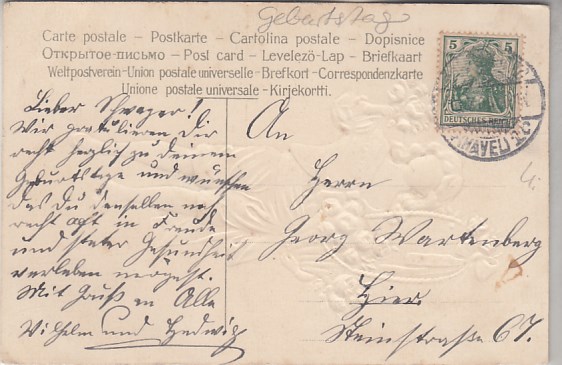 Geburtstag
Carte postale – Postkarte – Cartolina postale – Dopisnice
Открытое письмо – Post card – Levelezö-Lap – Briefkaart
Weltpostverein-Union postale universelle-Brefkort-Correspondenzkarte
Unione postale universale - Kirjekortti.
5 5
DEUTSCHES REICH
(HAVEL)
Lieber Schwager!
Wir gratulieren Dir
recht herzlich zu deinem
Geburtstage und wünschen
das Du denselben noch
recht oft in Freude
und steter Gesundheit
verleben mögest.
Mit Gruß an Alle
Wilhelm und Hedwig
An
Herrn
Georg Wartenberg
Hier
Steinstraße 67.